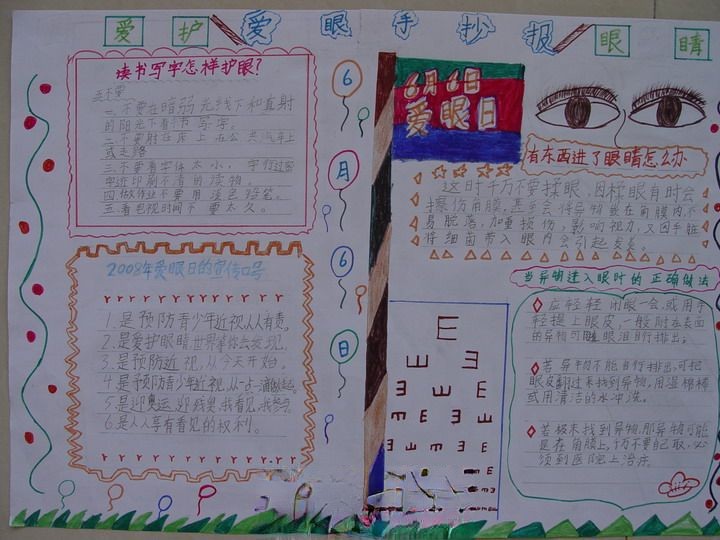 爱护爱眼手抄报眼睛
读书写字怎样护眼？
五不要
一.不要在暗弱光线下和直射
的阳光下看书写字。
或走路
三.不要看字体太小，字行过密
字迹印刷不清的读物。
四.做作业不要用淡色铅笔。
五.看电视时间不要太久。
2008年爱眼日的宣传口号
1.是预防青少年近视，人人有责。
2.是爱护眼睛，世界等你去发现。
3.是预防近视，从今天开始。
4.是预防青少年近视，从一点一滴做起。
5.是迎奥运 迎残奥，我看见，我参与。
6.是人人享有看见的权利。
6
月
6
日
6月6日
爱眼日
有东西进了眼睛怎么办
这时千万不要揉眼，因揉眼有时会
擦伤角膜，甚至会将异物嵌在角膜内，不
易脱落，加重损伤，影响视力，又因手脏
将细菌带入眼内会引起发炎。
当异物进入眼时的正确做法
应轻轻闭眼一会，或用手
轻提上眼皮，一般附在表面
的异物可随眼泪自行排出；
若异物不能自行排出，可把
眼皮翻过来找到异物，用湿棉棒
或用清洁的水冲洗。
若极未找到异物，那异物可能
是在角膜上，切不要自取，必
须到医院上治疗。
E